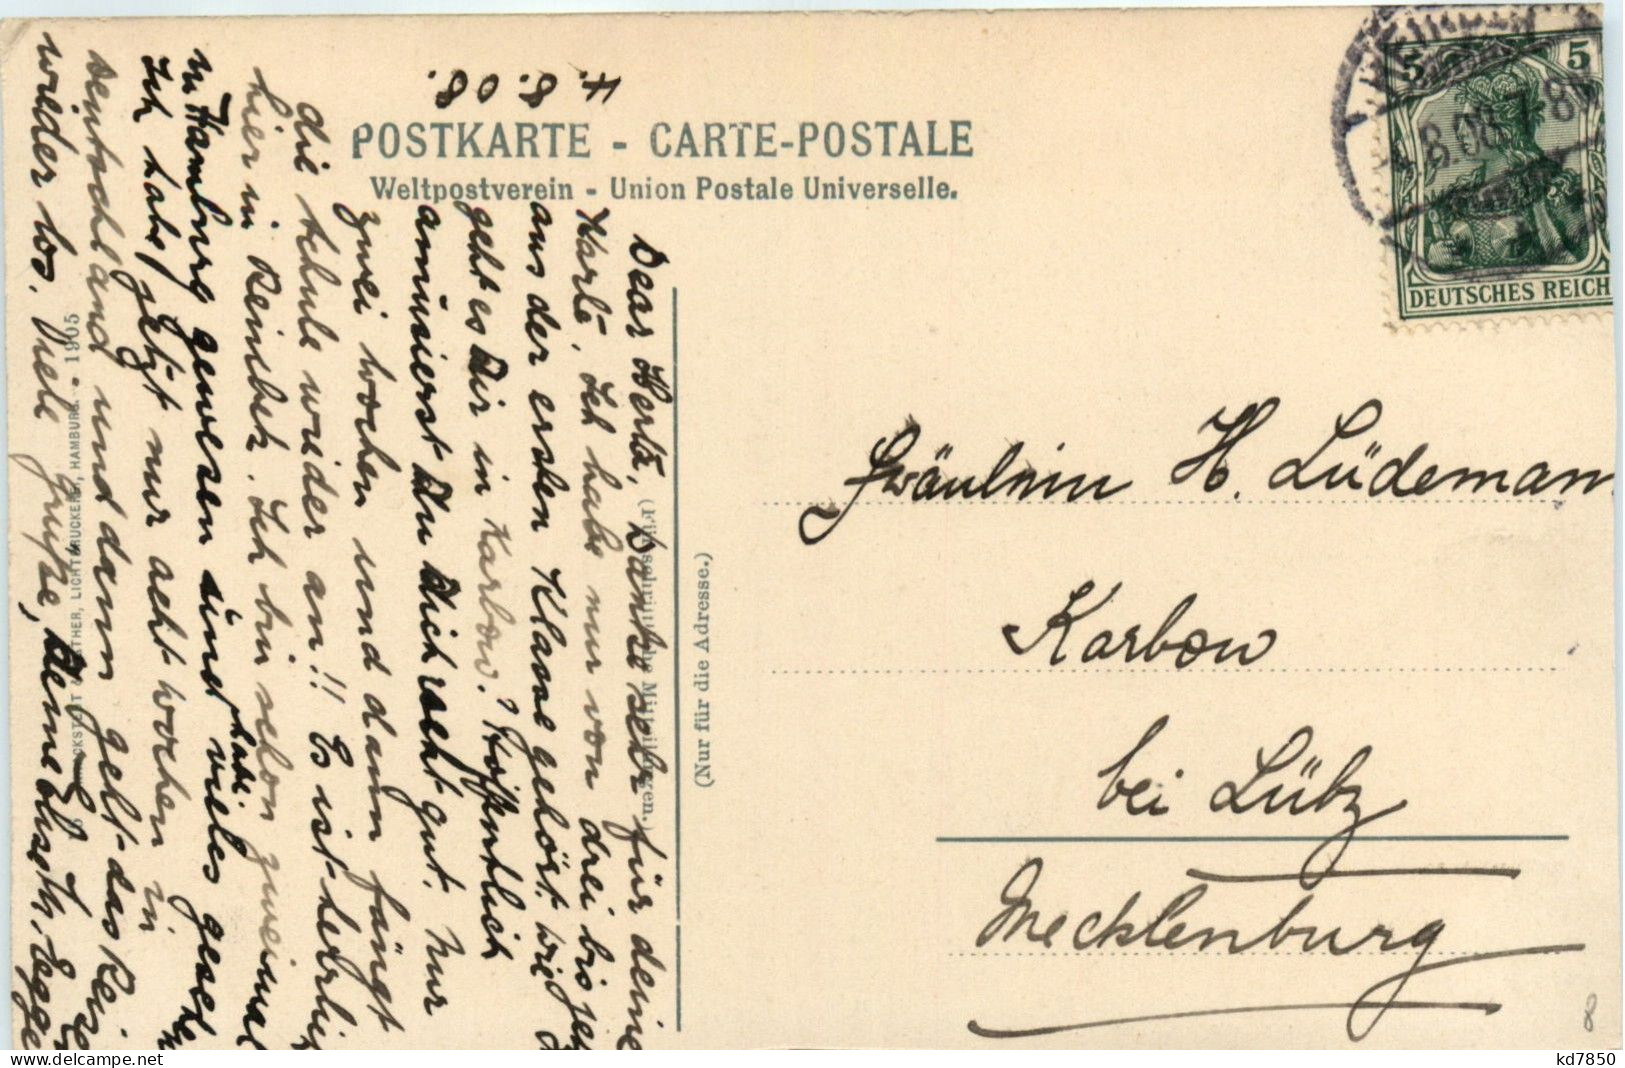 4. 8. 08.
POSTKARTE - CARTE-POSTALE
Weltpostverein - Union Postale Universelle.
5 5
4.8.08.7-8
DEUTSCHES REICH
Dear Herta, Danke sehr für deine
Karte. Ich habe nur von drei bis jetzt
aus der ersten Klasse gehört. Wie
geht es Dir in Karbow? Hoffentlich
amüsierst Du Dich recht gut. Nur
zwei Wochen und dann fängt
die Schule wieder an!! Es ist herrlich
hier in Reinbek. Ich bin schon zweimal
in Hamburg gewesen und habe vieles gesehen
Ich habe jetzt nur acht Wochen in
Deutschland und dann geht das Reisen
wieder los. Viele Grüße, Deine Elisabeth Egge
(Für schriftliche Mitteilungen.)
(Nur für die Adresse.)
LICHTDRUCKEREI, HAMBURG. - 1905
Fräulein H. Lüdeman
Karbow
bei Lübz
Mecklenburg
8
kd7850